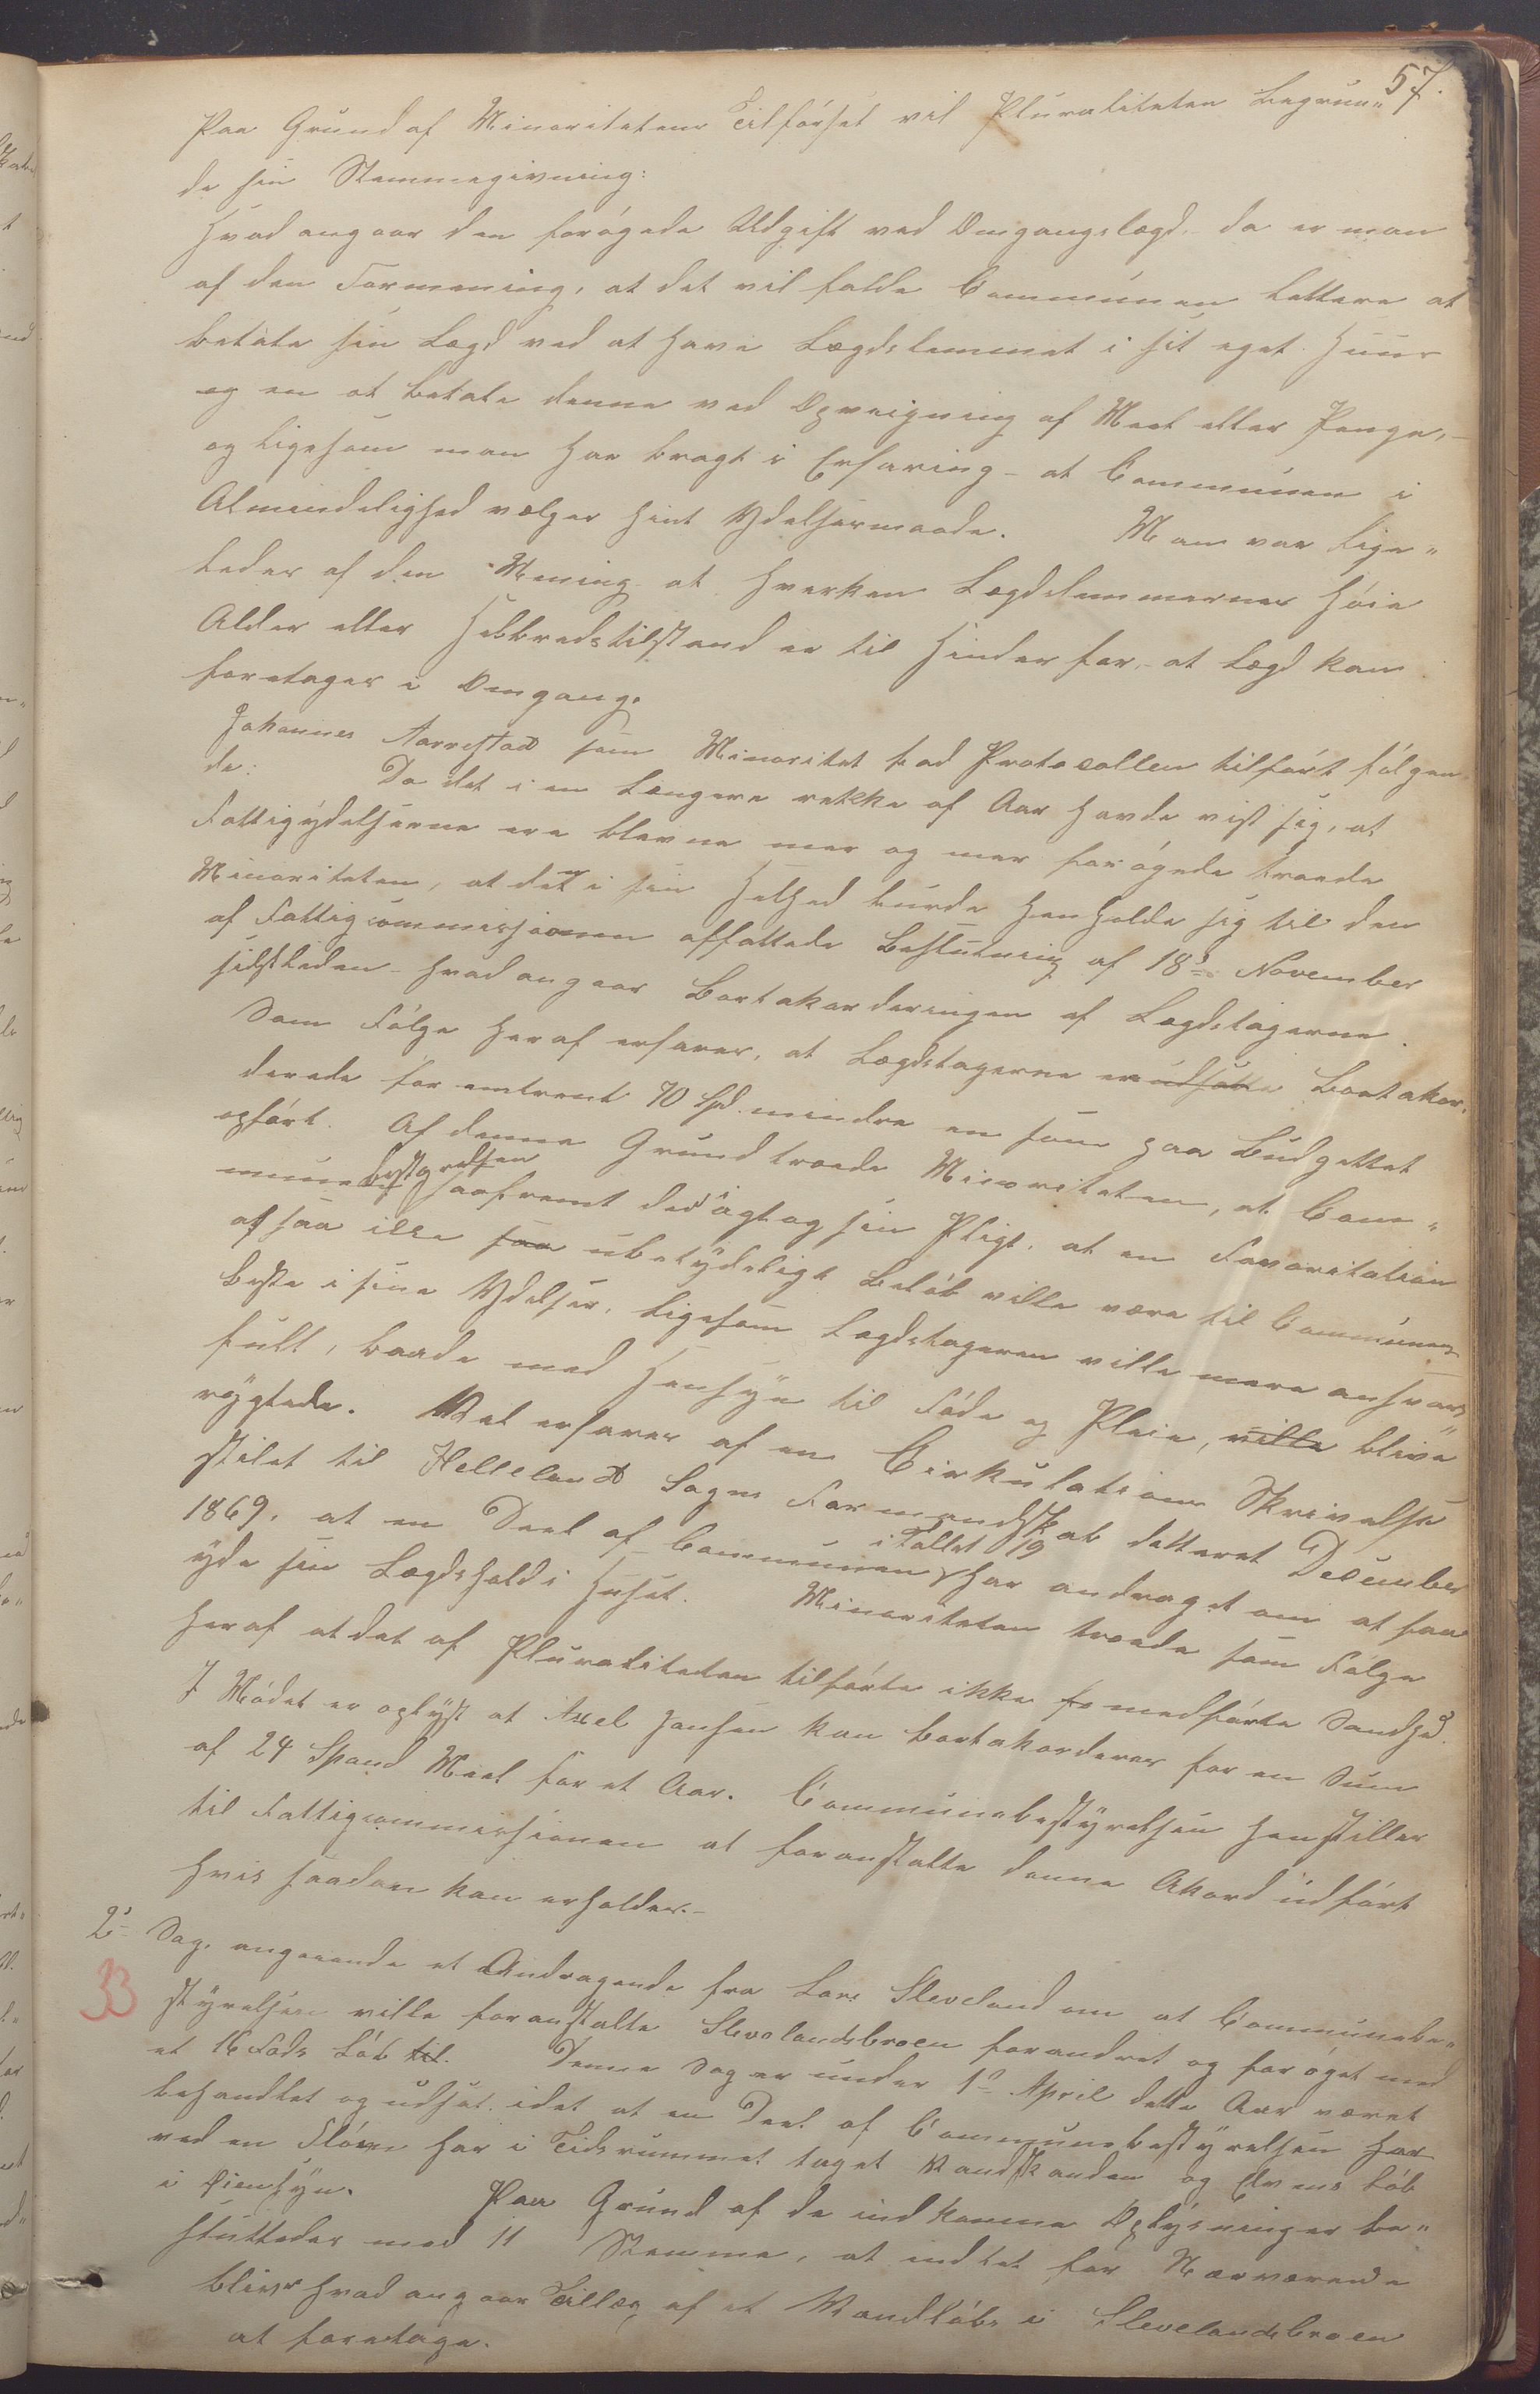 57.
Paa Grund af Minoritetens Tilførsel vil Pluraliteten begrun„
de sin Stemmegivning:
Hvad angaar den forøgede Udgift ved Omgangslægd. da er man
af den Formening, at det vil falde Communen lettere at
betale sin Lægd ved at have Lægdslemmet i sit eget Huus
og en at betale denne ved Opveigning af Meel eller Penge,-
og ligesom man har bragt i Erfaring - at Communen i
Almindelighed vælger hint Ydelsesmaade. Man var lige„
ledes af den Mening at hverken Lægdslemmernes høie
Alder eller Helbredstilstand er til Hinder for, at Lægd kan
foretages i Omgang.
Johannes Aarrestad som Minoritet bad Protocollen tilført følgen
de: Da det i en længere rekke af Aar havde vist sig, at
Fattigydelserne ere blevne mer og mer forøgede troede
Minoriteten, at den i sin Helhed burde henholde sig til den
af Fattigcommissionen affattede Beslutning af 18de November
sidstleden - hvad angaar Bortakorderingen af Lægdslagerne.
Som Følge heraf erfares, at Lægdslagerne er udsatte Bortakor„
derede for omtrent 70 Spd. mindre en som paa Budgettet
opført. Af denne Grund troede Minoriteten, at Com„
munebestyrelsen saafremt den agtog sin Pligt, at en Favoritation
af saa ille saa ubetydeligt Beløb ville være til Communens
beste i sine Ydelser, ligesom Lægdslageren ville mere ansvars„
fult, baade med Hensyn til Føde og Pleie, ville blive
røgtede. Det erfares af en Cirkulations Skrivelse
stilet til Helleland Sogns Formandskab datteret December
1869, at en Deel af Communen i Tallet 19 har andraget om at faa
yde sin Lægdshold i Huset. Minoriteten troede som Følge
heraf at det af Pluraliteten tilførte ikke fo medførte Sandhed.
I Mødet er oplyst at Axel Hansen kan bortakorderes for en Sum
af 24 Spand Meel for et Aar. Communebestyrelsen henstiller
til Fattigcommissionen at foranstalte denne Akord udført
hvis saadan kan erholdes.-
2den Sag. angaaende et Andragende fra Lars Sleveland om at Communebe„
33
styrelsen ville foranstalte Slevelandsbroen forandret og forøget med
et 16 Fods Løb til. Denne Sag er under 1ste April dette Aar været
behandlet og udsat idet at en Deel af Communebestyrelsen har
ved en Fløm har i Tidsrummet taget Vandstanden og Elvens Løb
i Øiensyn. Paa Grund af de indkomne Oplysninger be„
sluttedes med 11 Stemme, at indtet for Nærværende
bliver hvad angaar Tillæg af et Vandløbs i Slevelandsbroen
at foretage.